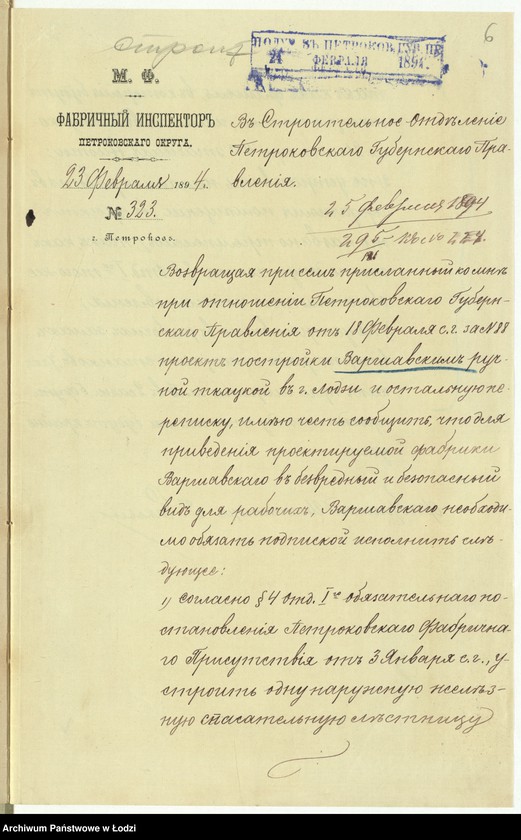 6
строит
ПОЛУЧ. ВЪ ПЕТРОКОВ. ГУБ. ПР.
24 ФЕВРАЛЯ 1894.
М. Ф.
ФАБРИЧНЫЙ ИНСПЕКТОРЪ
ПЕТРОКОВСКАГО ОКРУГА.
23 Февраля 1894 г.
№ 323.
г. Петроковъ.
Въ Строительное отдѣленіе
Петроковскаго Губернскаго Пра-
вленія.
25 февраля 1894
295
Возвращая при семъ присланный ко мнѣ
при отношеніи Петроковскаго Губерн-
скаго Правленія отъ 18 Февраля с. г. за № 88
проектъ постройки Варшавскимъ руч-
ной ткацкой въ г. Лодзи и остальную пе-
реписку, имѣю честь сообщить, что для
приведенія проектируемой фабрики
Варшавскаго въ безвредный и безопасный
видъ для рабочихъ, Варшавскаго необходи-
мо обязать подпиской исполнить слѣ-
дующее:
1) согласно § 4 отд. I го обязательнаго по-
становленія Петроковскаго Фабрична-
го Присутствія отъ 3 Января с. г., у-
строить одну наружную желѣз-
ную спасательную лѣстницу
Archiwum Państwowe w Łodzi